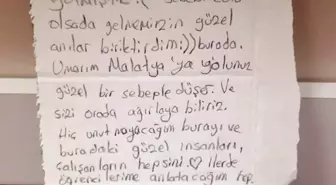 olsada gelmemizin güzel
anılar biriktirdim:)) burada.
Umarım Malatya'ya yolunuz
güzel bir sebeple düşer. Ve
sizi orada ağırlaya biliriz.
Hiç unutmayacağım burayı ve
buradaki güzel insanları,
çalışanların hepsini ♡ İlerde
öğrencilerime anlatacağım hep